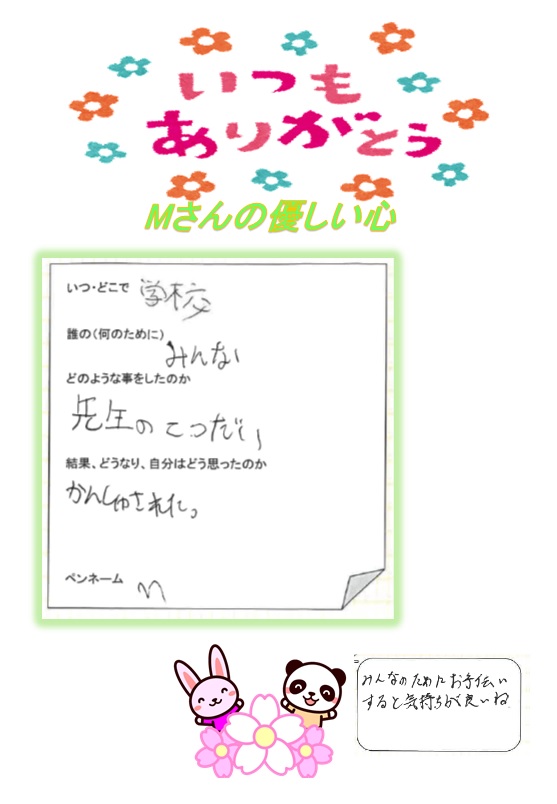 いつも
ありがとう
Mさんの優しい心
いつ・どこで 学校
誰の（何のために）
みんな
どのような事をしたのか
先生のてつだい
結果、どうなり、自分はどう思ったのか
かんしゃされた。
ペンネーム
M
みんなのためにお手伝い
すると気持ちが良いね